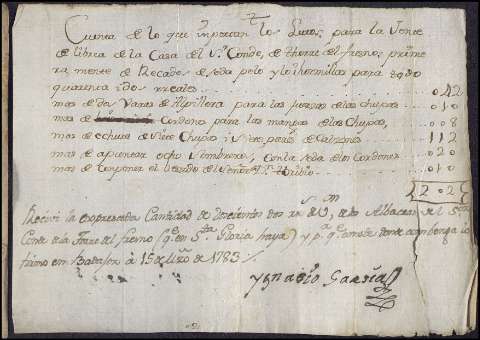 Cuenta de lo que importan los Lutos, para la Xente
de librea de la Casa del Sr. Conde, de thorre del fresno, prime
ra mente de Recado de seda pelo y lo hormillas para todo
quarenta i dos rreales 042
mas de dos Varas de Arpillera para las fuerzas de las chupas 010
mas de Cordono para las mangas de las Chupas, 008
mas de echura de siete Chupas i siete pares de Calzones 112
mas de apuntar ocho sombreros, con la seda de los Cordones 020
mas de componer el bestido del Señor Dn. 010
202
Reciví la expresada Cantidad de Doscientos dos rs. de Vn, de los Albaceas del Sor.
Conde de la Torre del fresno (qe. en Sta. Gloria haya) y pa. qe. conste donde combenga lo
firmo en Badajoz à 15 de de 1783
Ygnacio Garsia